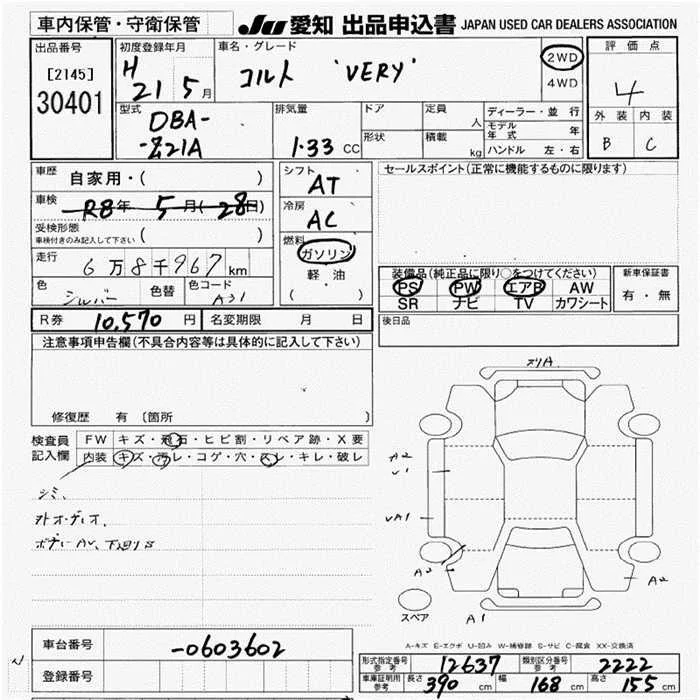 車内保管・守衛保管
JU 愛知 出品申込書 JAPAN USED CAR DEALERS ASSOCIATION
出品番号
[2145]
30401
初度登録年月
H 21 5 月
車名・グレード
コルト 'VERY'
2WD
4WD
評価点
4
外装 内装
B C
型式
DBA-
-Z21A
排気量
1.33 CC
ドア
形状
定員 人
積載 kg
ディーラー・並行
モデル年式 年
ハンドル 左・右
車歴
自家用・( )
車検
R8年 5月(28日)
受検形態
車検付きのみ記入して下さい ( )
走行
6万8千967km
色
シルバー
色替
色コード
A31
シフト
AT
冷房
AC
燃料
ガソリン
軽油
( ・ )
セールスポイント(正常に機能するものに限ります)
装備品(純正品に限り○をつけてください)
PS PW エアB AW
SR ナビ TV カワシート
新車保証書
有・無
R券 10,570 円
名変期限 月 日
後日品
注意事項申告欄(不具合内容等は具体的に記入して下さい)
修復歴 有 〔箇所
検査員
記入欄
FW キズ・飛石・ヒビ割・リペア跡・X要
内装 キズ・汚レ・コゲ・穴・スレ・キレ・破レ
シミ、
A2
U1
UA1
A2
A1
スペア
A-キズ E-エクボ U-凹み W-補修跡 S-サビ C-腐食 XX-交換済
車台番号
-0603602
登録番号
形式指定番号
参考
12637
類別区分番号
参考
2222
車庫証明用
参考
長さ 390 cm 幅 168 cm 高さ 155 cm